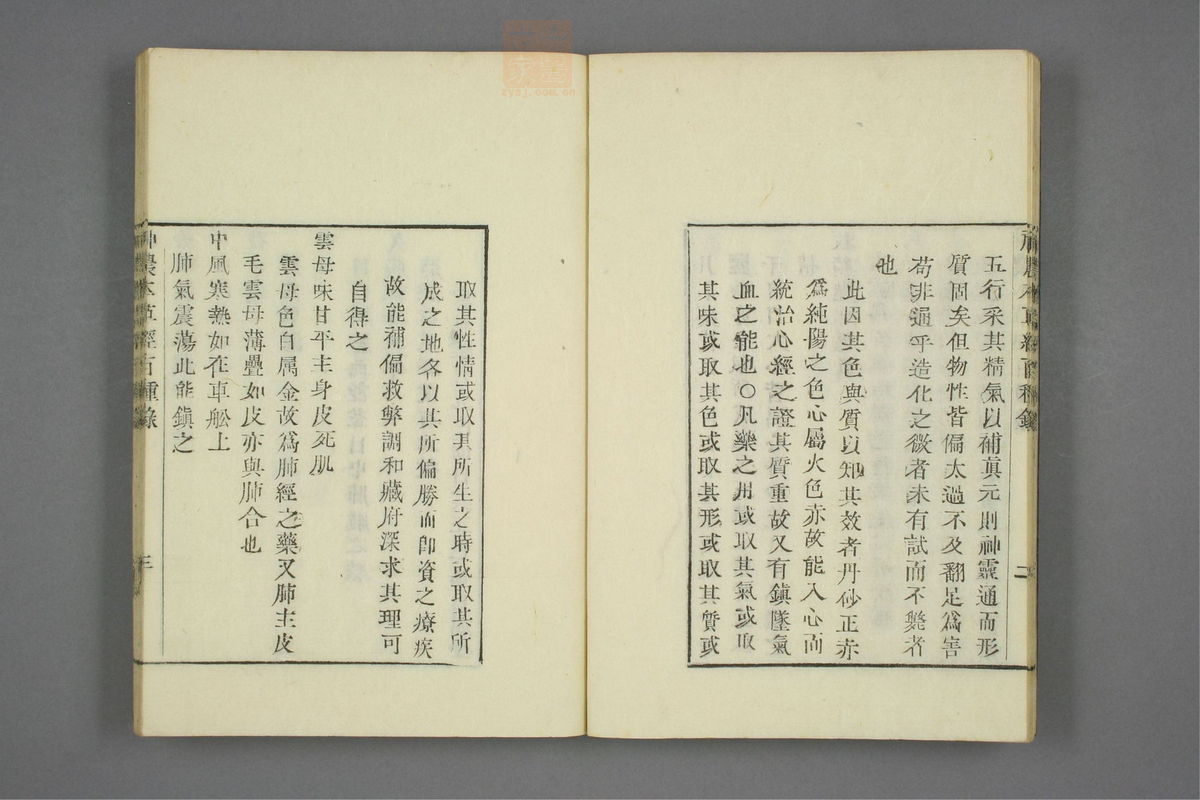 五行采其精氣以補真元則神靈通而形
質固矣但物性皆偏太過不及翻足爲害
苟非通乎造化之微者未有試而不斃者
也
此因其色與質以知其效者丹砂正赤
爲純陽之色心屬火色赤故能入心而
統治心經之證其質重故又有鎮墜氣
血之能也○凡藥之用或取其氣或取
其味或取其色或取其形或取其質或
取其性情或取其所生之時或取其所
成之地各以其所偏勝而卽資之療疾
故能補偏救弊調和藏府深求其理可
自得之
雲母味甘平主身皮死肌
雲母色白属金故爲肺經之藥又肺主皮
毛雲母薄疊如皮亦與肺合也
中風寒熱如在車船上
肺氣震蕩此能鎮之
神農本草經百種錄
三
神農本草經百種錄
二
zysj.com.cn